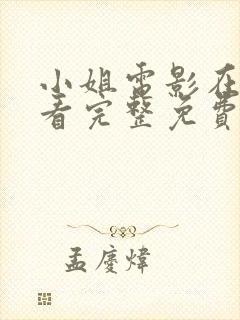 小姐電影在
看完整免費
孟慶煒